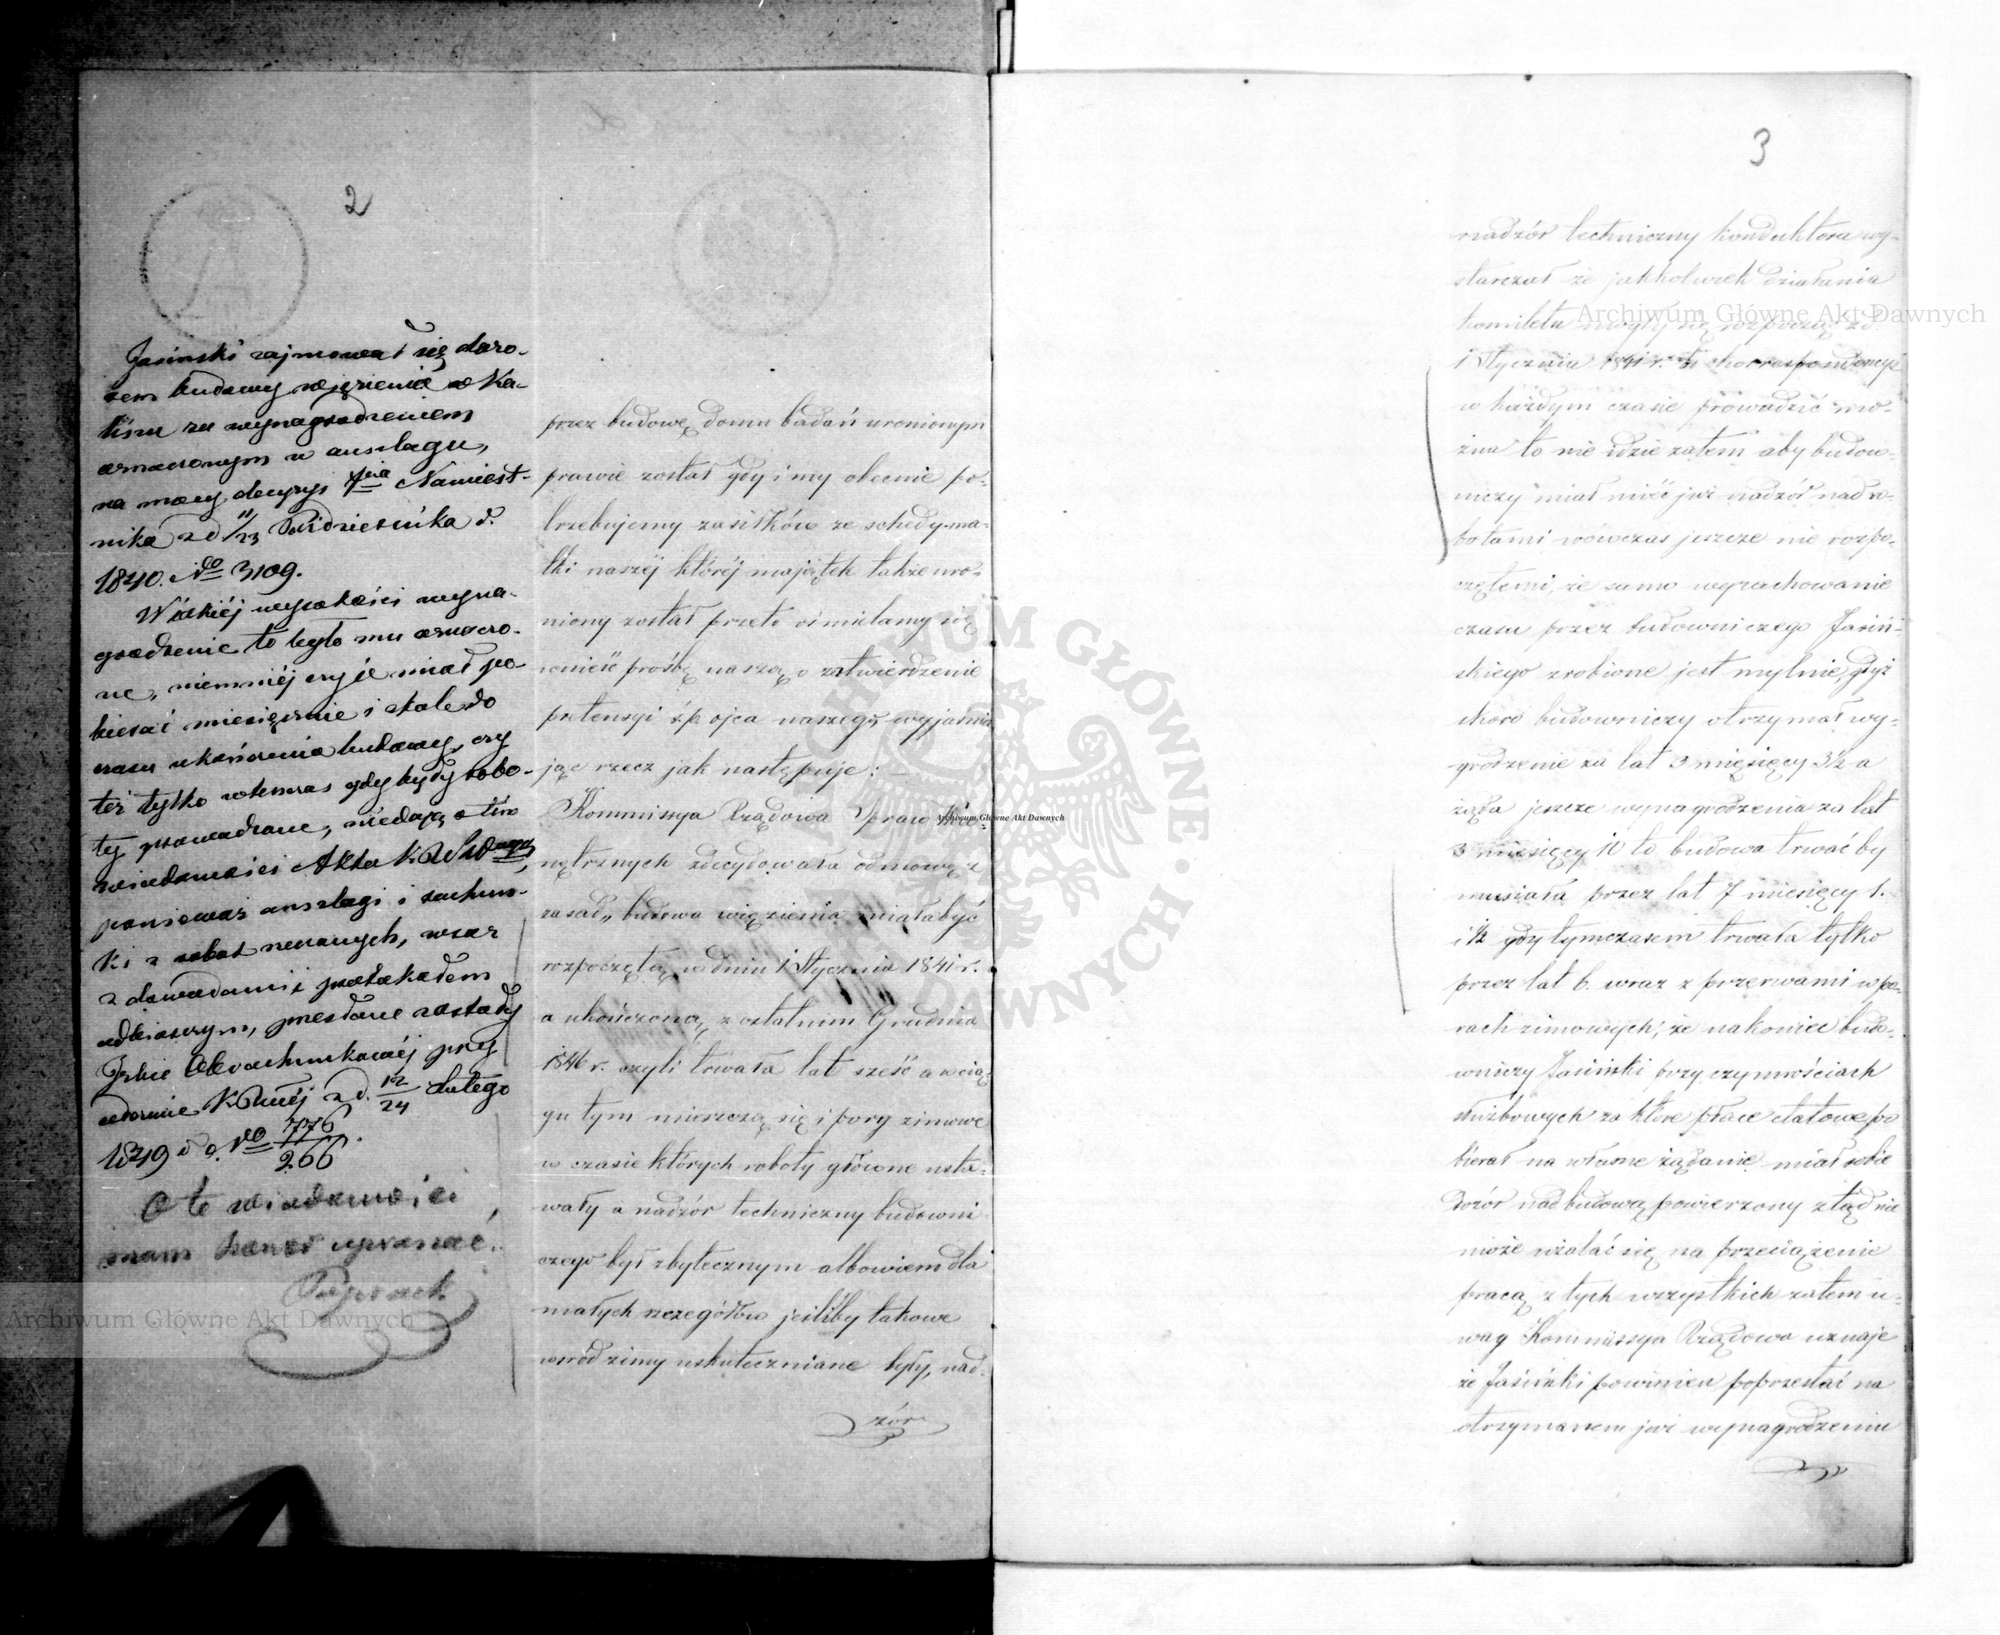 2
Jasiński zajmował się dozo-
rem budowy więzienia w Ka-
liszu za wynagrodzeniem
oznaczonym w anszlagu,
na mocy decyzyi Xcia Namiest-
nika z d 11/23 Października r.
1840. No 3109.
W jakiéj wysokości wyna-
grodzenie to było mu oznaczo-
ne, niemniéj czy je miał po-
bierać miesięcznie i stale do
czasu ukończenia budowy, czy
téż tylko wówczas gdy były robo-
ty prowadzone, niedają o tém
wiadomości Akta K. R. S. W.
ponieważ anszlagi i rachun-
ki z robót rzeczonych, wraz
z dowodami i protokołem
odbiorczym, przesłane zostały
Izbie Obrachunkowéj przy
odezwie K. Rznéj z d. 12/24 Lutego
1849 r. No 776/266.
O te wiadomości
mam honor upraszać.
przez budowę domu badań uronionym
prawie został gdy i my obecnie po-
trzebujemy zasiłków ze schedy ma-
tki naszéj któréj majątek także uro-
niony został przeto ośmielamy się
wznieść prośbę naszą o zatwierdzenie
pretensyi ś.p. ojca naszego, wyjaśnia
jąc rzecz jak następuje: —
Kommissya Rządowa Spraw We-
wnętrznych zdecydowała odmowę z
zasad „budowa więzienia miała być
rozpoczętą w dniu 1 Stycznia 1841 r.
a ukończoną z ostatnim Grudnia
1846 r. czyli trwała lat sześć a w cią
gu tym mieszczą się i pory zimowe
w czasie których roboty główne usta-
wały a nadzór techniczny budowni
czego był zbytecznym albowiem dla
małych szczegółów jeśliby takowe
wśród zimy uskuteczniane były, nad-
zór
3
nadzór techniczny konduktora wy-
starczał że jakkolwiek działania
komitetu mogły się rozpocząć od
1 Stycznia 1841 r. bo korrespondencyę
w każdym czasie prowadzić mo-
żna to nie idzie zatem aby budow-
niczy miał mieć już nadzór nad ro-
botami wówczas jeszcze nie rozpo-
czętemi, że samo wyrachowanie
czasu przez budowniczego Jasiń-
skiego zrobione jest mylnie, gdyż
skoro budowniczy otrzymał wy-
grodzenie za lat 3 miesięcy 3½ a
żąda jeszcze wynagrodzenia za lat
3 miesięcy 10 to budowa trwać by
musiała przez lat 7 miesięcy 1.
i ½ gdy tymczasem trwała tylko
przez lat 6. wraz z przerwami w po-
rach zimowych; że nakoniec budo-
wniczy Jasiński przy czynnościach
służbowych za które płace etatowe po
bierał na własne żądanie miał sobie
dozór nad budową powierzony ztąd nie
może użalać się na przeciążenie
pracą z tych wszystkich zatem u-
wag Kommissya Rządowa uznaje
że Jasiński powinien poprzestać na
otrzymanem już wynagrodzeniu
Archiwum Główne Akt Dawnych
Archiwum Główne Akt Dawnych
Archiwum Główne Akt Dawnych
ARCHIWUM GŁÓWNE AKT DAWNYCH